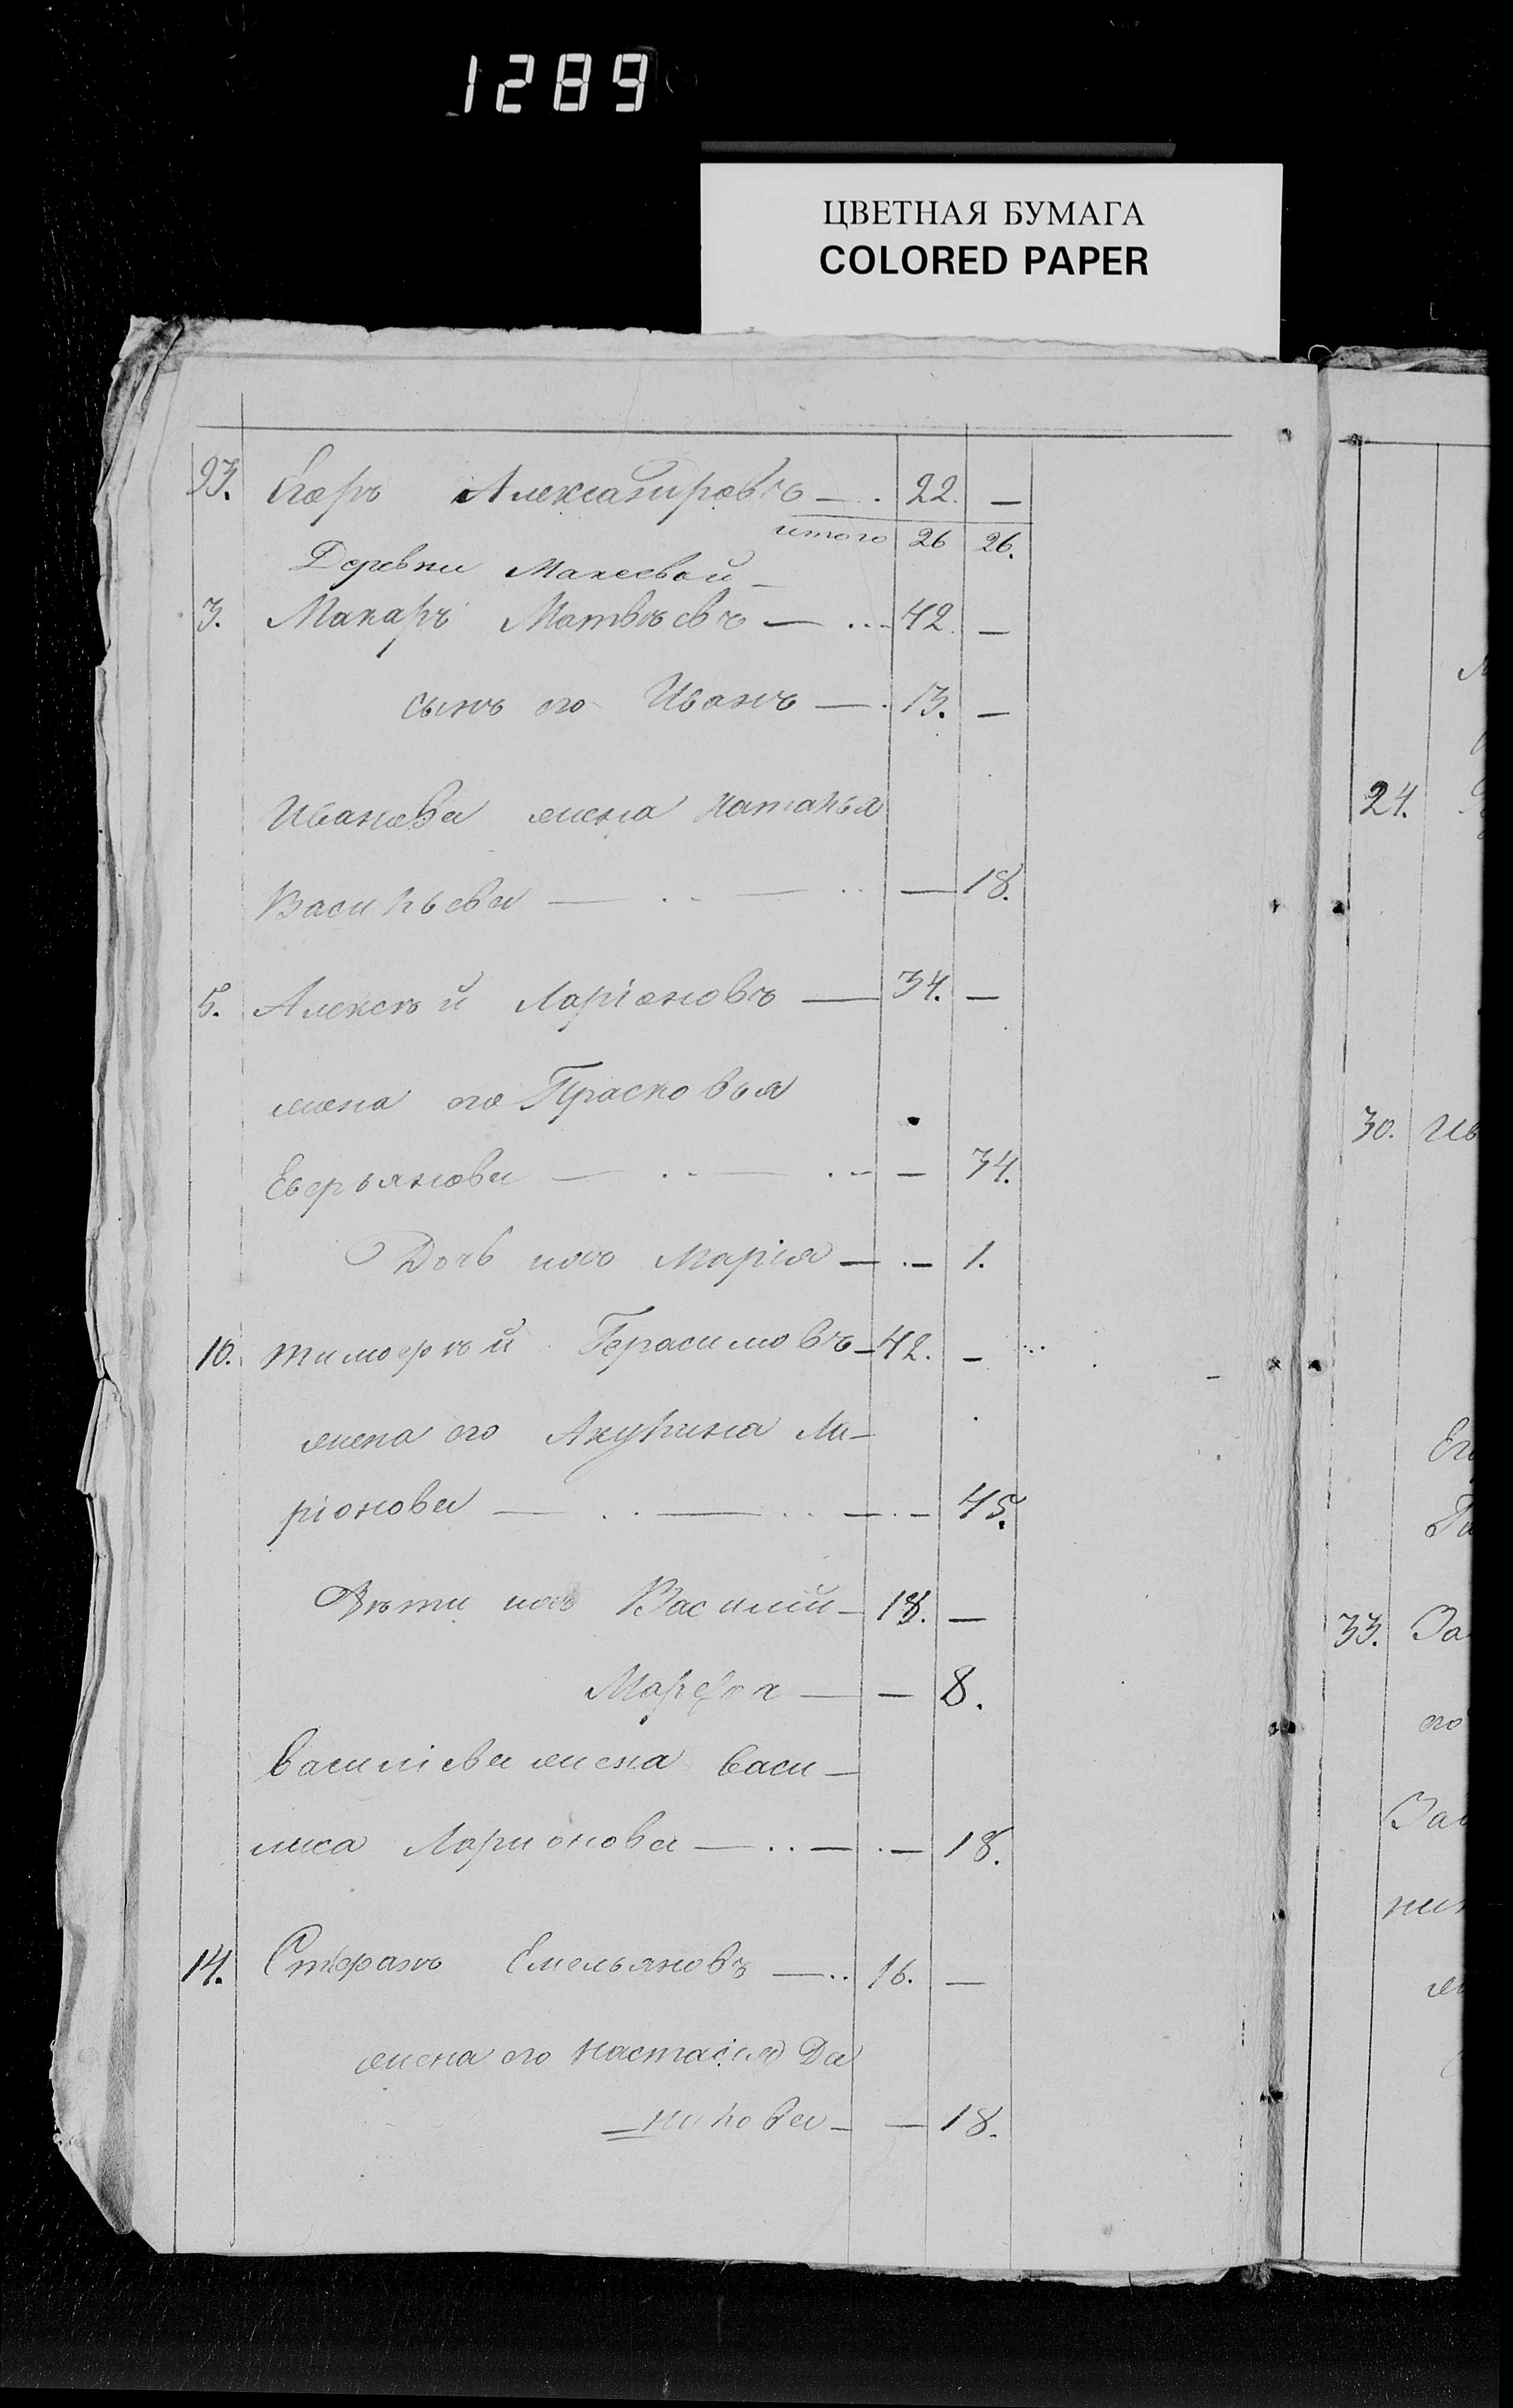 1289
ЦВЕТНАЯ БУМАГА
COLORED PAPER
93. Егоръ Александровъ — . 22. —
итого 26 26.
Деревни Макеевой —
3. Макаръ Матвѣевъ — . . 42. —
сынъ его Иванъ — . 13. —
Иванова жена Наталья
Васильева — . . — . . — 18.
5. Алексѣй Ларіоновъ — 34. —
жена его Прасковья
Еверьянова — . . — . . — 34.
Дочь ихъ Марія — . — 1.
10. Тимофѣй Герасимовъ — 42. —
жена его Акулина Ла-
ріонова — . . — . . — . — 45.
Дѣти ихъ Василій — 18. —
Марфа — — 8.
Василіева жена Васи-
лиса Ларионова — . . — . — 18.
14. Стефанъ Емельяновъ — . . 16. —
жена его Настасія Да
нилова — — 18.
24.
30. Ив
33.
его